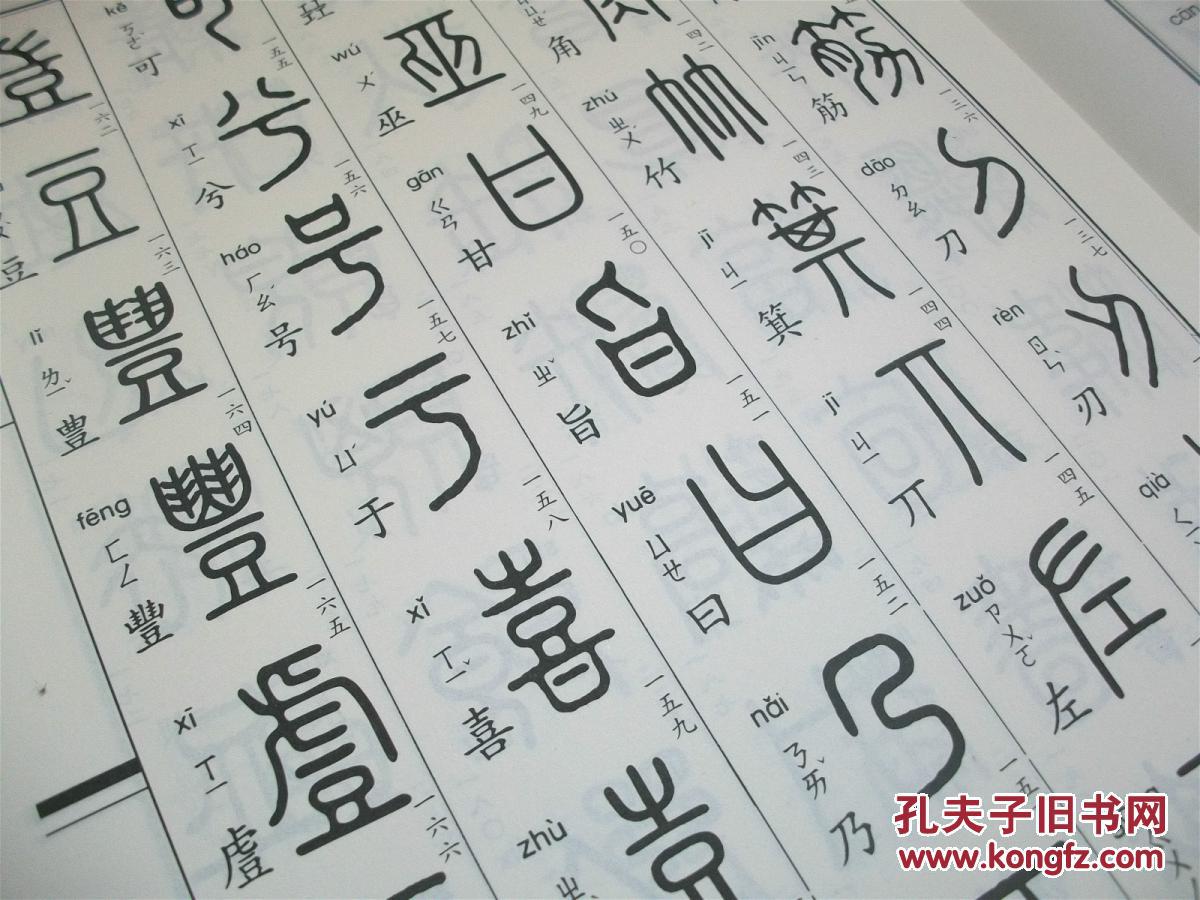 jīn
ㄐㄧㄣ
筋
一三六
dāo
ㄉㄠ
刀
一三七
rèn
ㄖㄣˋ
刃
qià
角
一四二
zhú
ㄓㄨˊ
竹
一四三
jī
ㄐㄧ
箕
一四四
jī
ㄐㄧ
丌
一四五
zuǒ
ㄗㄨㄛˇ
左
wú
ㄨˊ
巫
一四九
gān
ㄍㄢ
甘
一五〇
zhǐ
ㄓˇ
旨
一五一
yuē
ㄩㄝ
曰
一五二
nǎi
ㄋㄞˇ
乃
一五
kě
ㄎㄜˇ
可
一五五
xī
ㄒㄧ
兮
一五六
háo
ㄏㄠˊ
号
一五七
yú
ㄩˊ
于
一五八
xǐ
ㄒㄧˇ
喜
一五九
zhù
ㄓ
一六二
豆
一六三
lǐ
ㄌㄧˇ
豊
一六四
fēng
ㄈㄥ
豐
一六五
xī
ㄒㄧ
䖒
一六六
孔夫子旧书网
www.kongfz.com